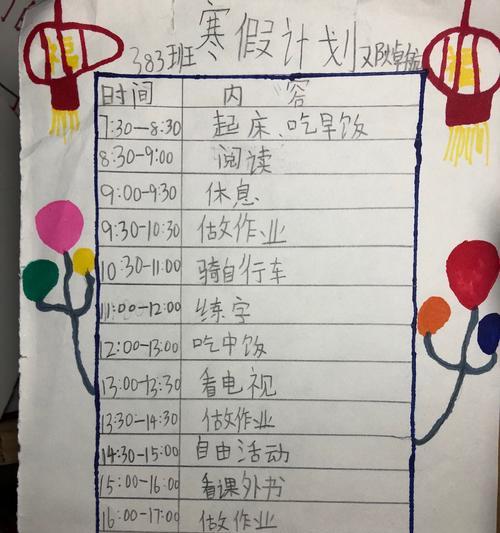 福
383班 寒假计划
时间 内容
7:30—8:30 起床、吃早饭
8:30-9:00 阅读
9:00-9:30 休息
9:30-10:30 做作业
10:30-11:00 骑自行车
11:00-12:00 练字
12:00-13:00 吃中饭
13:00-13:30 看电视
13:30-14:30 做作业
14:30-15:00 自由活动
15:00-16:00 看课外书
16:00-17:00 做作业